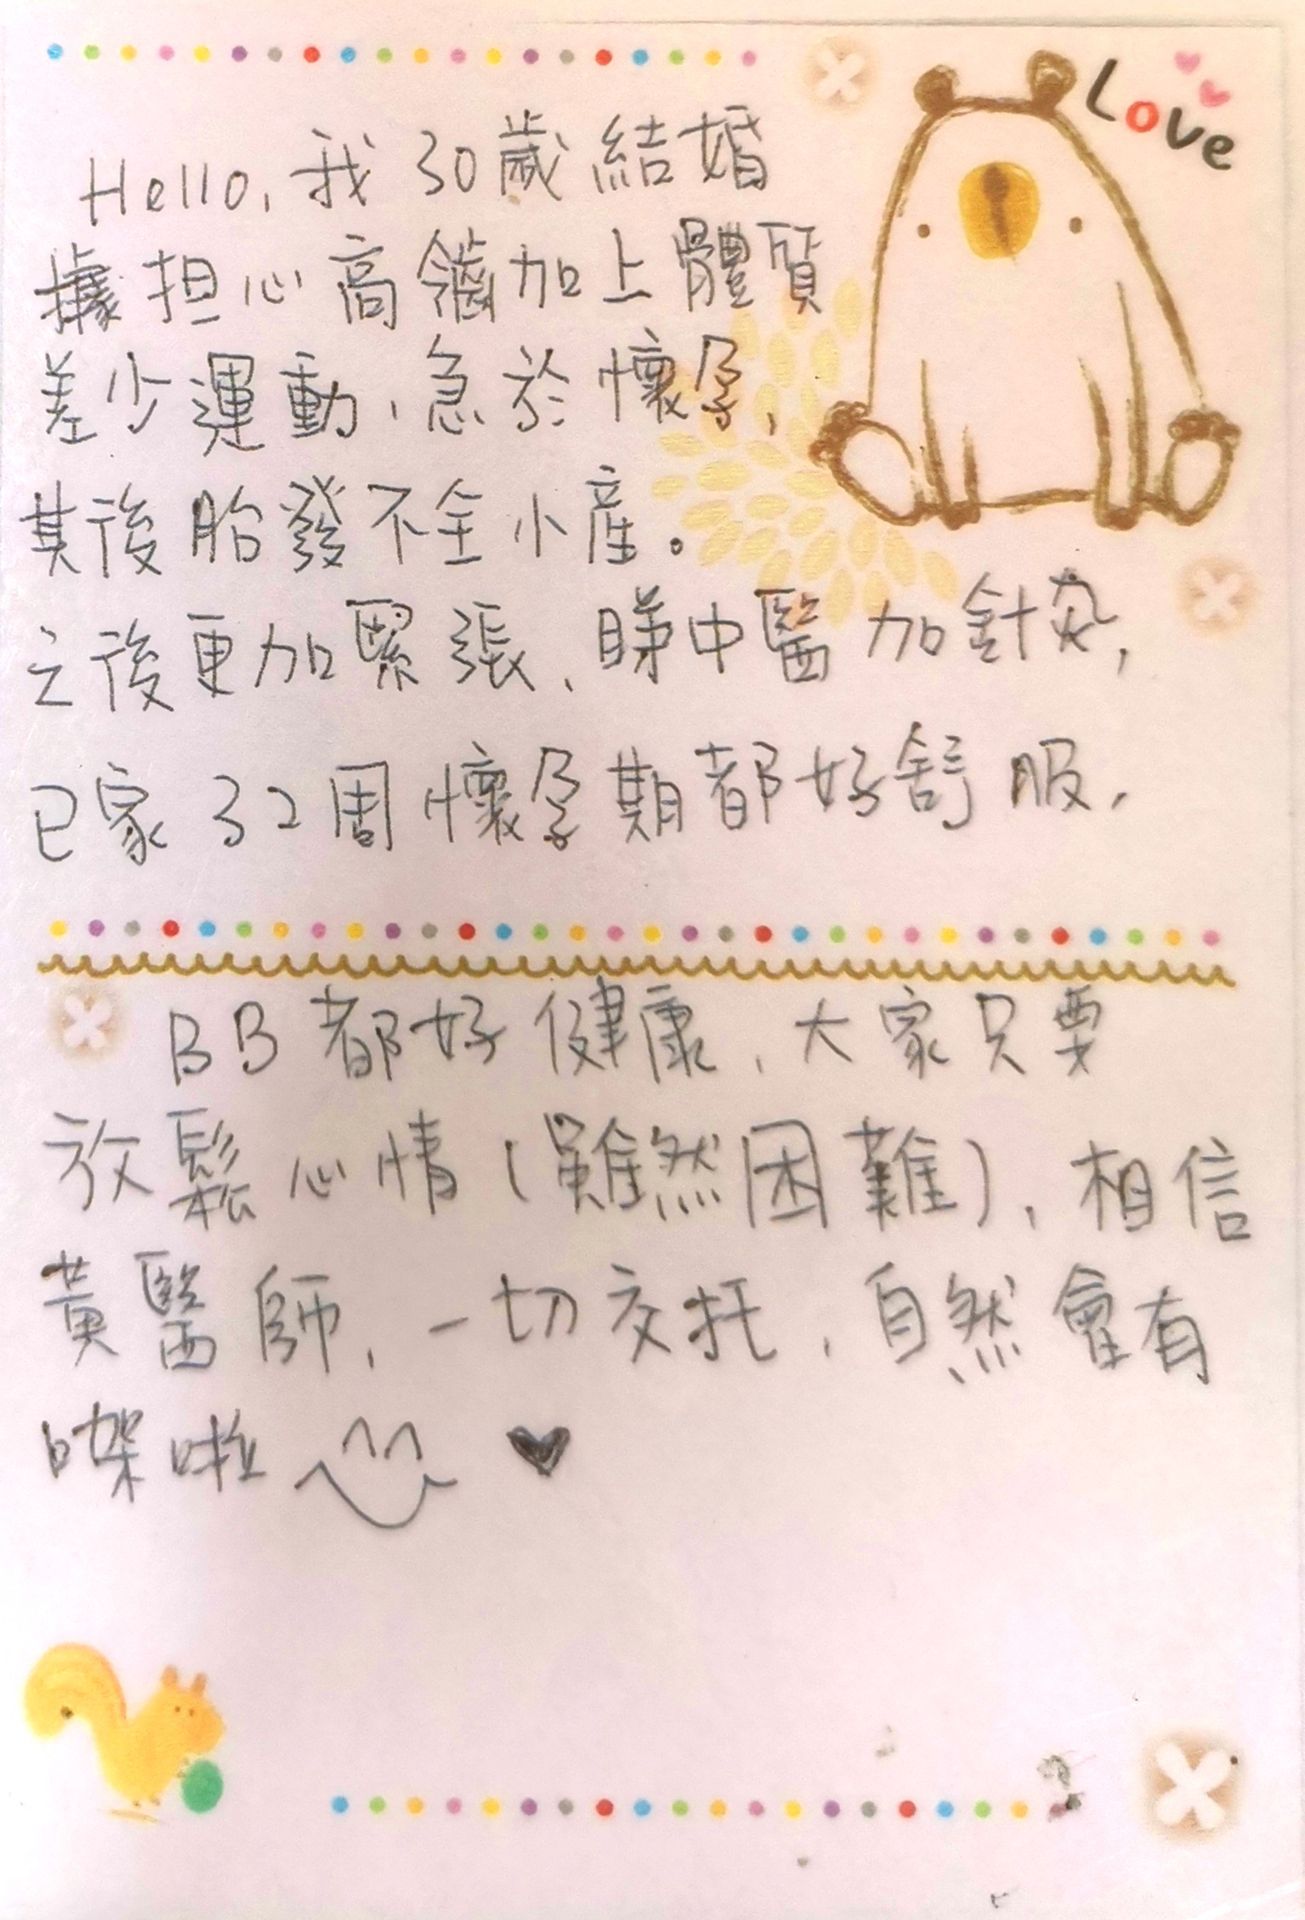 Love
Hello, 我 30歲結婚
據担心高齡加上體質
差少運動,急於懷孕,
其後胎發不全小產。
之後更加緊張,睇中醫加針灸,
已家 32周懷孕期都好舒服,
BB都好健康,大家只要
放鬆心情(雖然困難),相信
黃醫師,一切交托,自然會有
㗎啦